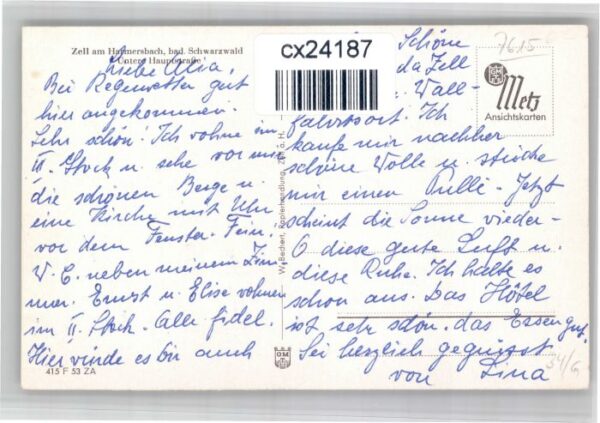 Zell am Harmersbach, bad. Schwarzwald
Untere Hauptstraße
Liebe Alia,
Bei Regenwetter gut
hier angekommen.
Sehr schön! Ich wohne im
II. Stock u. sehe vor mir
die schönen Berge u.
eine Kirche mit Uhr
vor dem Fenster. Fein!
W. C. neben meinem Zim-
mer. Ernst u. Elise wohnen
im II. Stock. Alle fidel.
Hier würde es Dir auch
415 F 53 ZA
cx24187
Schöne
da Zell
Wall-
fahrtsort. Ich
kaufe mir nachher
schöne Wolle u. stricke
mir einen Pulli. Jetzt
scheint die Sonne wieder-
O diese gute Luft u.
diese Ruhe. Ich halte es
schon aus. Das Hôtel
ist sehr schön. das Essen gut.
Sei herzlich gegrüsst
von Lina
W. Bechert, Papierhandlung, Zell a. H.
7615
Metz
Ansichtskarten
54/6